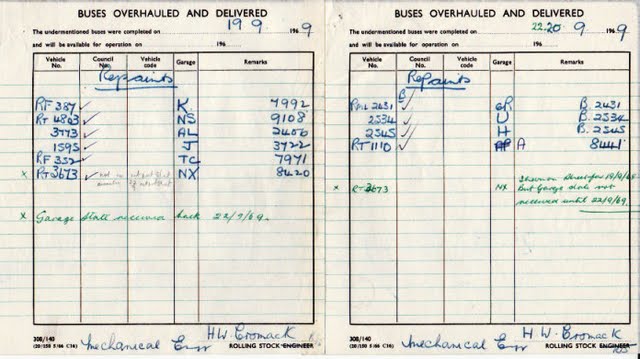 BUSES OVERHAULED AND DELIVERED
The undermentioned buses were completed on 19 9 1969
and will be available for operation on 196
Vehicle No. Council No. Vehicle code Garage Remarks
Repaints
RF 387 ✓ K 7992
RT 4803 ✓ NS 9108
3773 ✓ AL 2406
1595 ✓ J 3722
RF 352 ✓ TC 7971
x RT 3673 ✓ NX 8420
x Garage Stall received back 22/9/69.
308/140
Mechanical Engr H.W. Cromack
ROLLING STOCK ENGINEER
BUSES OVERHAULED AND DELIVERED
The undermentioned buses were completed on 22.20 9 1969
and will be available for operation on 196
Vehicle No. Council No. Vehicle code Garage Remarks
Repaints
2431 ✓ GR B. 2431
2534 ✓ U B. 2534
2545 ✓ H B. 2545
RT 1110 ✓ AP A 8441
Shewn on Sheet for 19/9/69
x RT 3673 NX But Garage stall not
received until 22/9/69.
308/140
Mechanical Engr H W Cromack
ROLLING STOCK ENGINEER